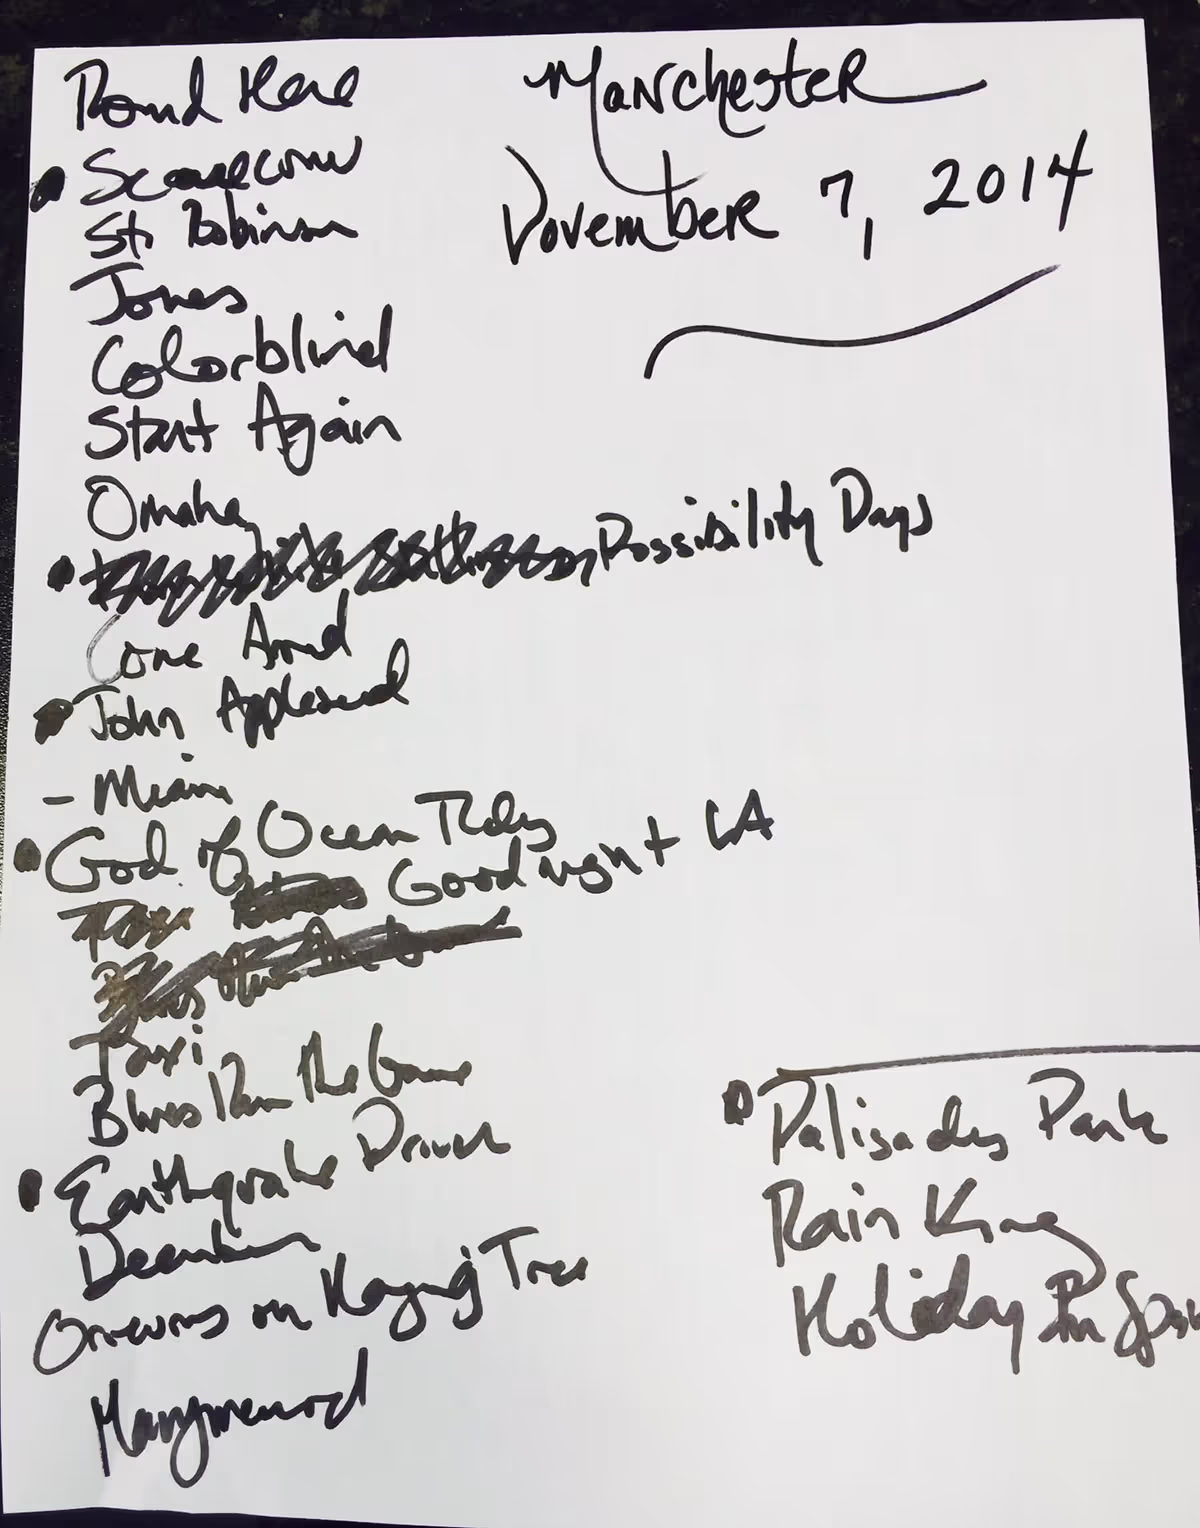 Round Here
Manchester
November 7, 2014
Scarecrow
St. Robinson
Jones
Colorblind
Start Again
Omaha
Possibility Days
Cone And
John Appleseed
- Miami
God of Ocean Tides
Goodnight LA
Taxi
Blues Run the Game
Earthquake Driver
December
on Hanging Tree
Hardwood
Palisades Park
Rain King
Holiday In Spain